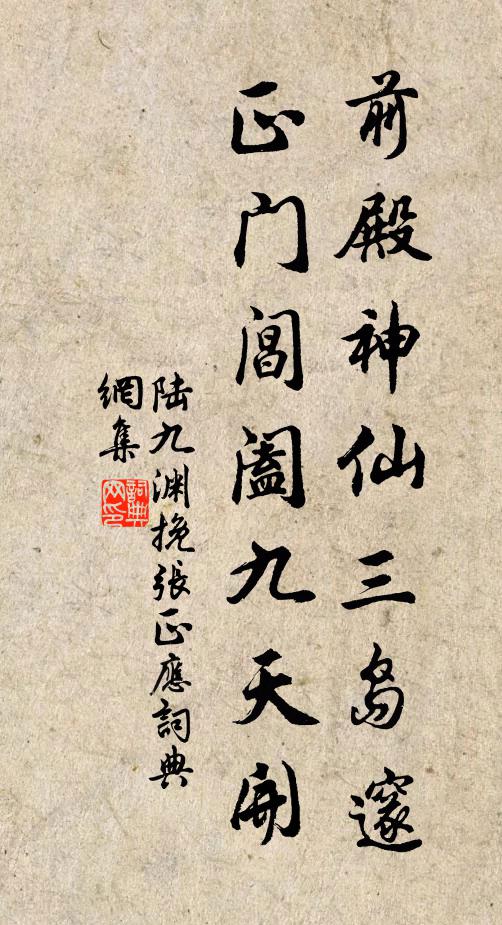 前殿神仙三岛邃
正门阊阖九天开
陆九渊挽张正應詞典
網集
詞典
网印